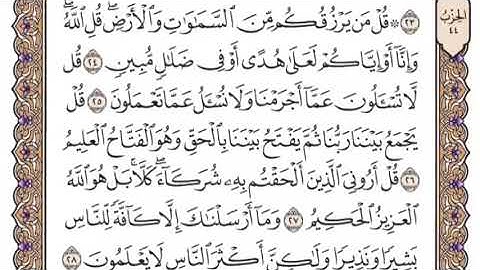 الحزب ٤٤
٢٣ ۞ قُلْ مَن يَرْزُقُكُم مِّنَ ٱلسَّمَٰوَٰتِ وَٱلْأَرْضِۖ قُلِ ٱللَّهُۖ
وَإِنَّآ أَوْ إِيَّاكُمْ لَعَلَىٰ هُدًى أَوْ فِى ضَلَٰلٍ مُّبِينٍ ٢٤ قُل
لَّا تُسْـَٔلُونَ عَمَّآ أَجْرَمْنَا وَلَا نُسْـَٔلُ عَمَّا تَعْمَلُونَ ٢٥ قُلْ
يَجْمَعُ بَيْنَنَا رَبُّنَا ثُمَّ يَفْتَحُ بَيْنَنَا بِٱلْحَقِّ وَهُوَ ٱلْفَتَّاحُ ٱلْعَلِيمُ
٢٦ قُلْ أَرُونِىَ ٱلَّذِينَ أَلْحَقْتُم بِهِۦ شُرَكَآءَۖ كَلَّاۚ بَلْ هُوَ ٱللَّهُ
ٱلْعَزِيزُ ٱلْحَكِيمُ ٢٧ وَمَآ أَرْسَلْنَٰكَ إِلَّا كَآفَّةً لِّلنَّاسِ
بَشِيرًا وَنَذِيرًا وَلَٰكِنَّ أَكْثَرَ ٱلنَّاسِ لَا يَعْلَمُونَ ٢٨